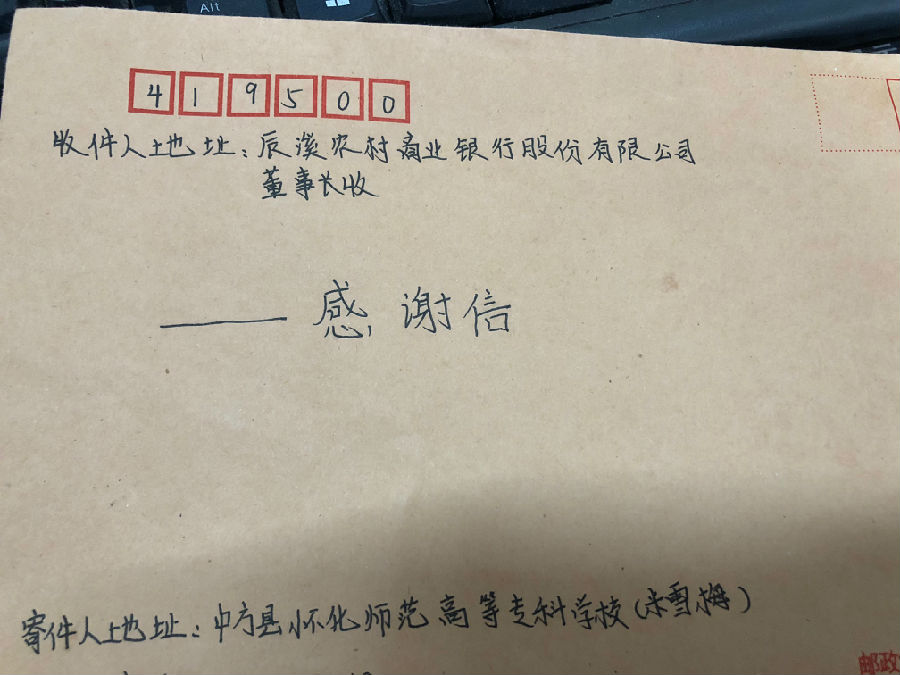 Alt
419500
收件人地址：辰溪农村商业银行股份有限公司
董事长收
——感谢信
寄件人地址：中方县怀化师范高等专科学校(米雪梅)
邮政